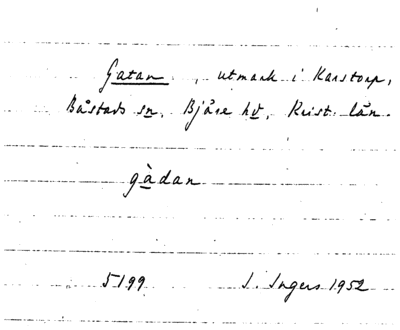 Gatan , utmark i Karstorp,
Båstads sn, Bjäre hd, Krist. län.
gàdan
5199 I. Ingers 1952